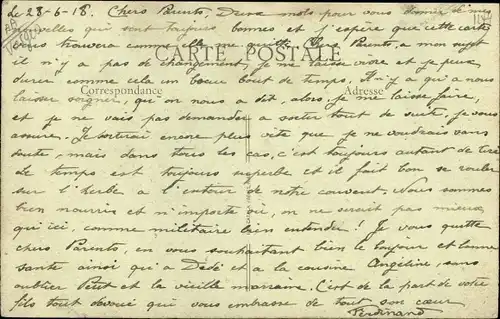 Le 28-6-18. Chers Parents, Deux mots pour vous donner de mes
nouvelles qui sont toujours bonnes et j'espère que cette carte
vous trouvera comme elle me quitte. Chers Parents, a mon sujet
CARTE POSTALE
il n'y a pas de changement, je me laisse vivre et je peux
durer comme cela un beau bout de temps. Il n'y a qui a nous
Correspondance
Adresse
laisser soigner, qu'on nous a dit, alors, je me laisse faire,
et je ne vais pas demander a sortir tout de suite, je vous
assure. Je sortirai encore plus vite que je ne voudrais sans
doute, mais dans tous les cas, c'est toujours autant de tiré
Le temps est toujours superbe et il fait bon se rouler
sur l'herbe a l'entour de notre couvent. Nous sommes
bien nourris et n'importe où, on ne serait pas mieux
qu'ici, comme militaire bien entendu! Je vous quitte
chers Parents, en vous souhaitant bien le bonjour et bonne
santé ainsi qui a Dédé et a la cousine Angeline, sans
oublier Petit et la vieille marraine. C'est de la part de votre
fils tout dévoué qui vous embrasse de tout son cœur
Ferdinand